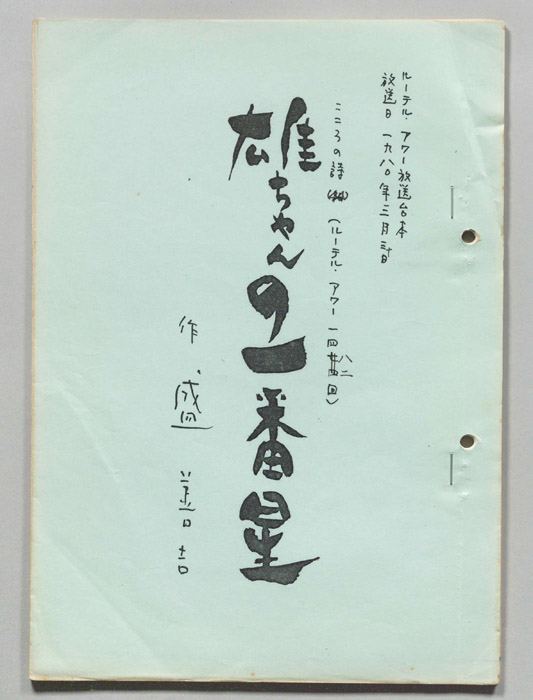 ルーテル・アワー放送台本
放送日 一九八〇年三月三十日
こころの詩 (ルーテル・アワー 一四八二回)
雄ちゃんの一番星
作、盛 善吉